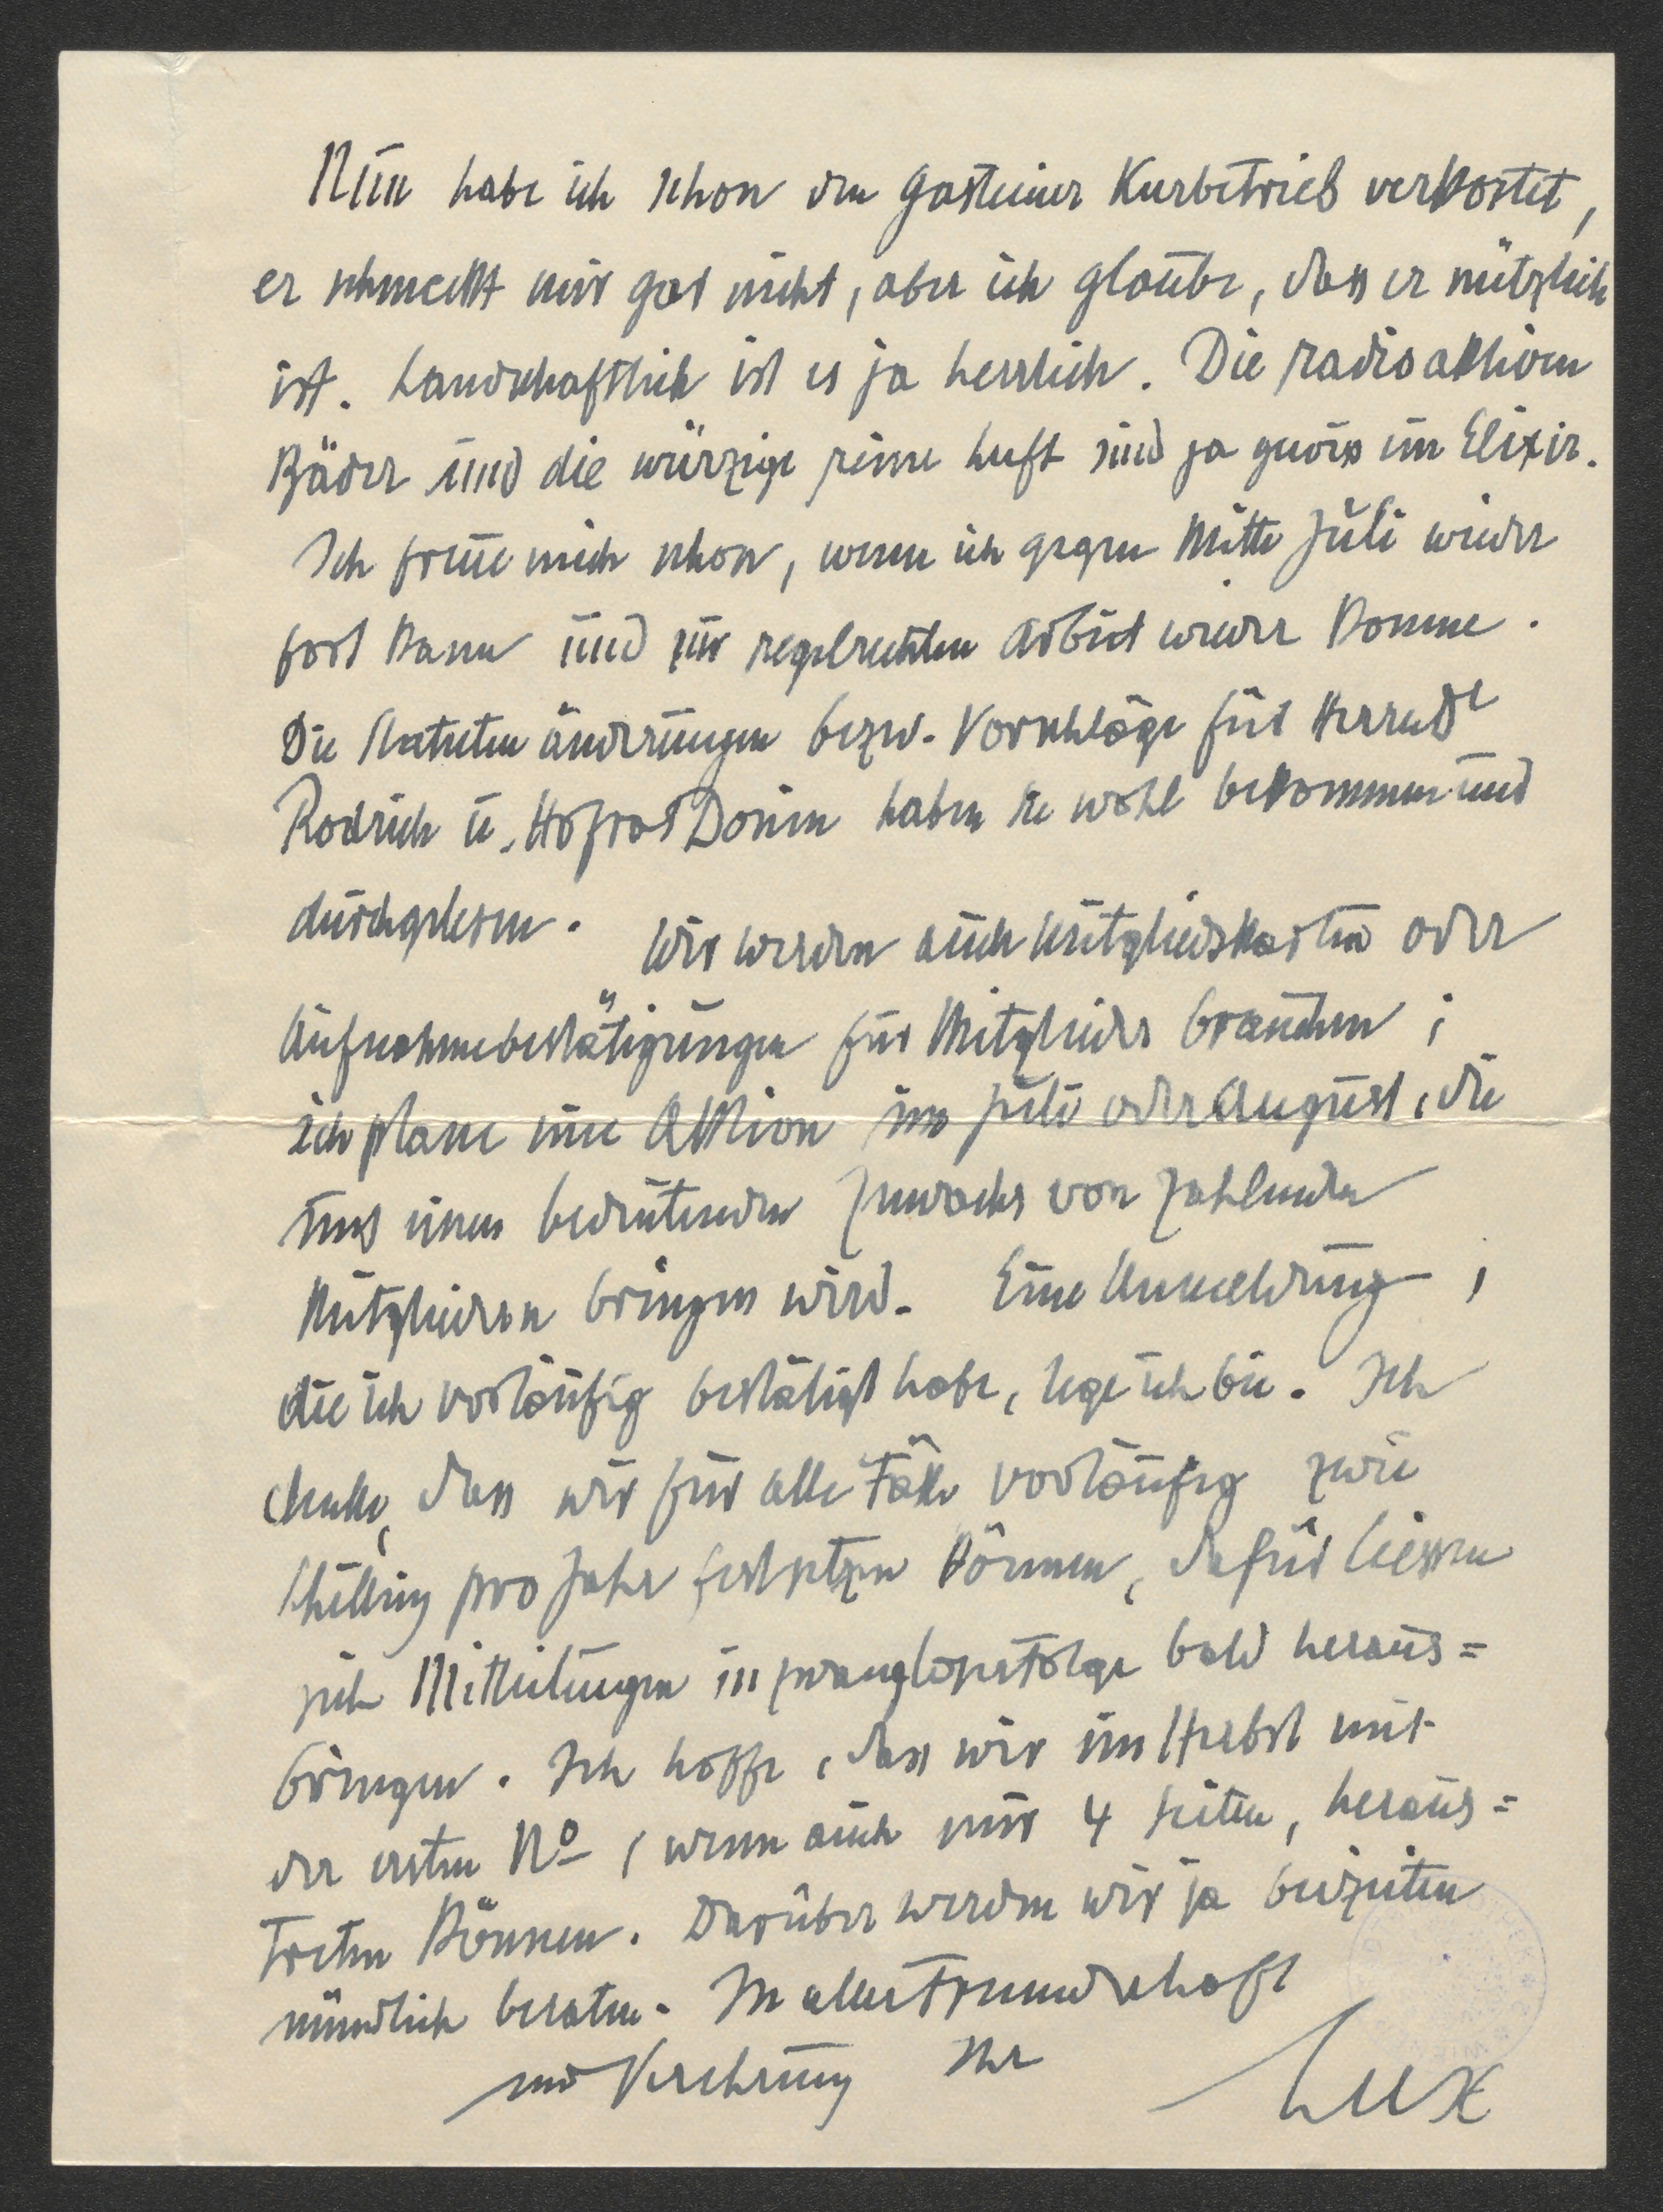 Nun habe ich schon den Gasteiner Kurbetrieb verkostet,
er schmeckt mir gar nicht, aber ich glaube, dass er nützlich
ist. Landschaftlich ist es ja herrlich. Die radioaktiven
Bäder und die würzige reine Luft sind ja gewiss ein Elixir.
Ich freue mich schon, wenn ich gegen Mitte Juli wieder
fort kann und zur regelrechten Arbeit wieder komme.
Die Statutenänderungen bezw. Vorschläge für Herrn Dr
Rodrich u. Hofrat Donin haben Sie wohl bekommen und
durchgelesen. Wir werden auch Mitgliedskarten oder
Aufnahmebestätigungen für Mitglieder brauchen;
ich plane eine Aktion im Juli oder August, die
uns einen bedeutenden Zuwachs von zahlenden
Mitgliedern bringen wird. Eine Anmeldung,
die ich vorläufig bestätigt habe, lege ich bei. Ich
denke, dass wir für alle Fälle vorläufig zwei
Schilling pro Jahr festsetzen können, dafür liessen
sich Mitteilungen in zwangloser Folge bald heraus=
bringen. Ich hoffe, dass wir im Herbst mit
der ersten No, wenn auch nur 4 Seiten, heraus=
treten können. Darüber werden wir ja beizeiten
mündlich beraten. In aller Freundschaft
und Verehrung Ihr
Lux